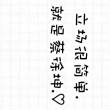 立场很简单.
就是蔡徐坤.♡